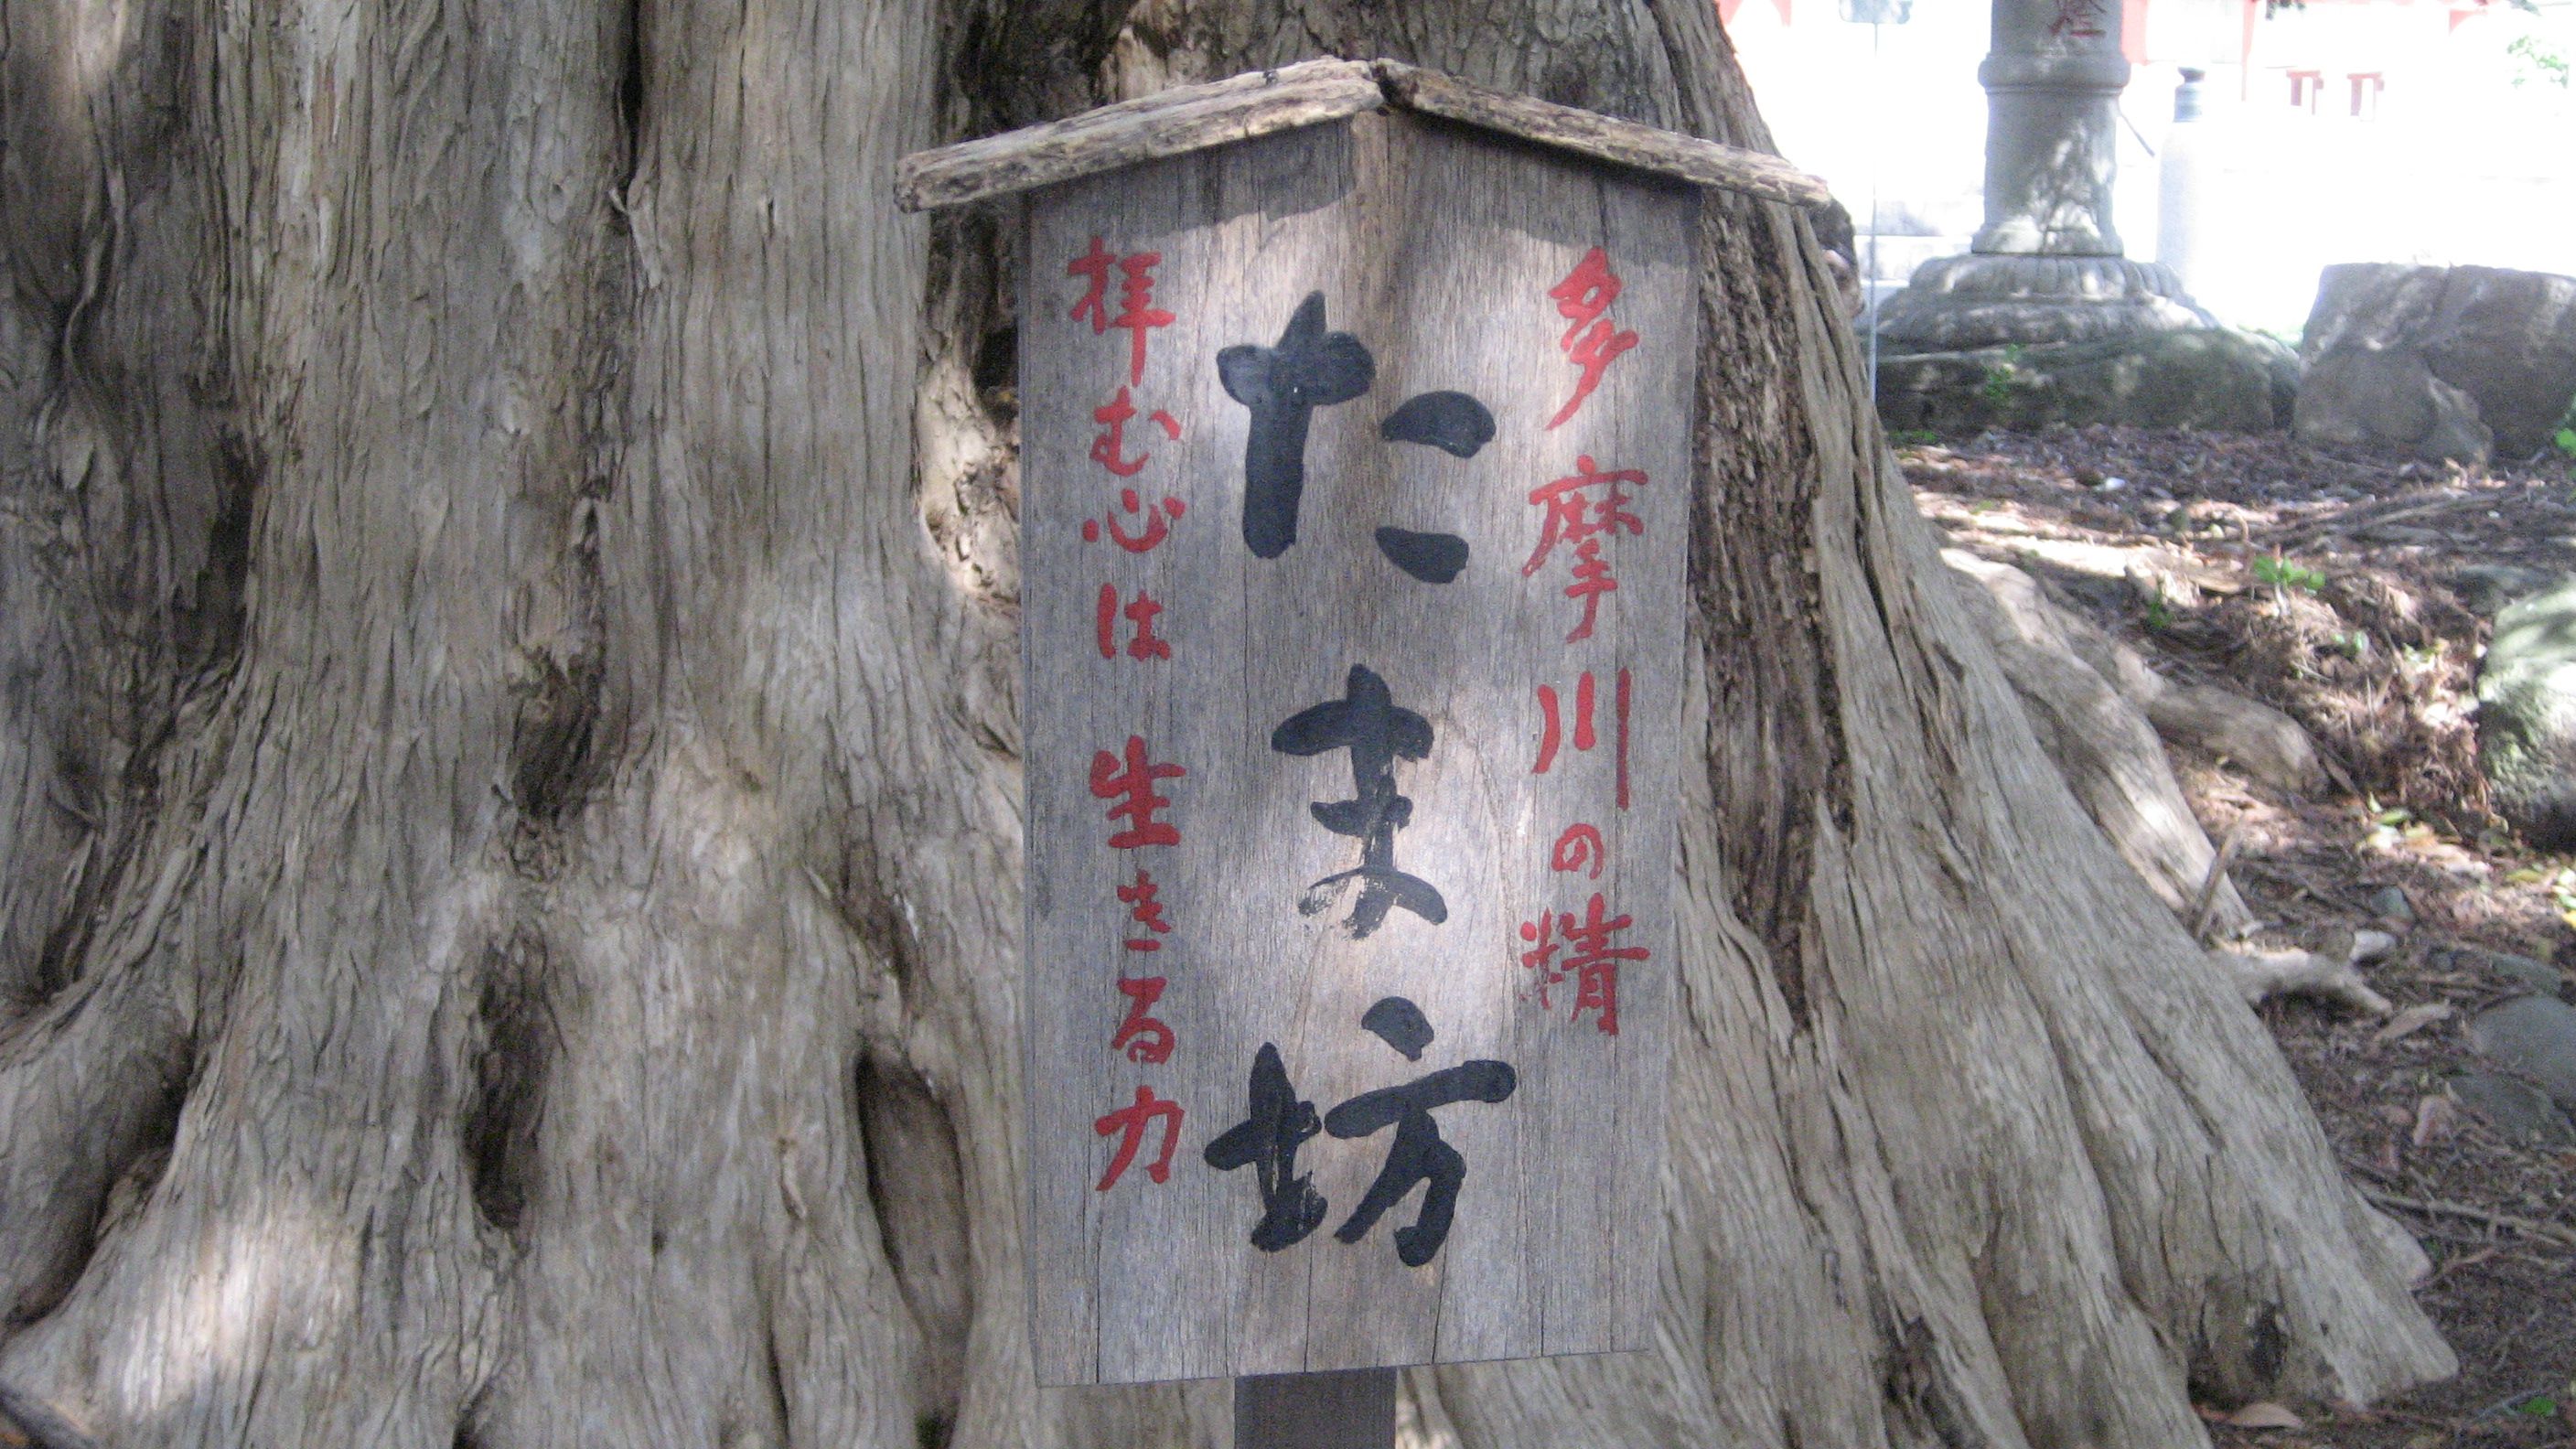 多摩川の精
たま坊
拝む心は生きる力